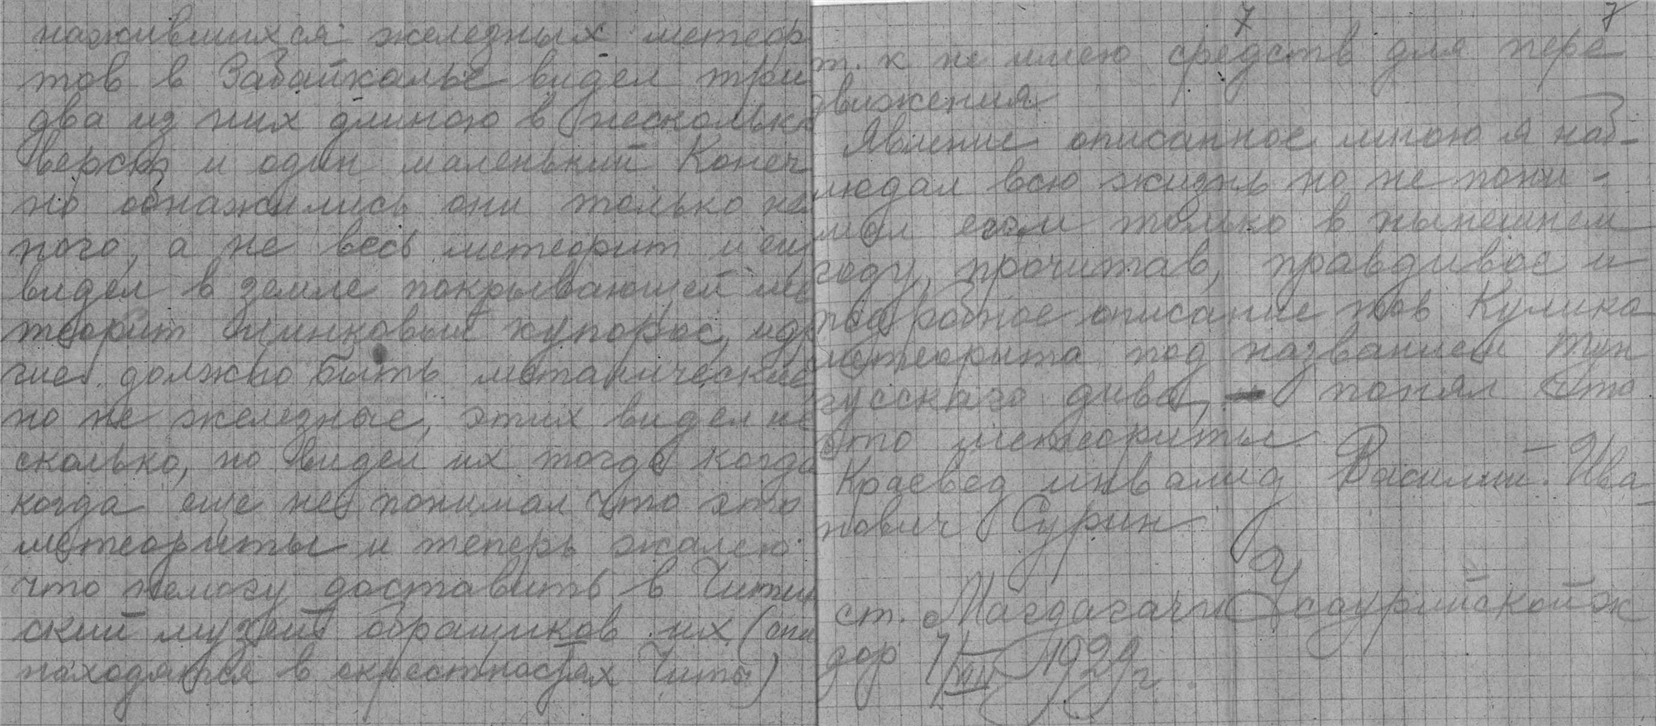 нажившихся железных метеор
тов в Забайкалье видел три
два из них длиною в несколько
верст и один маленький Конеч
но обнажились они только не
ного, а не весь метеорит и ещ
видел в земле покрывающей ме
теорит цинковый купорос, др
гие должно быть метанические
но не железные, этих видел не
сколько, но видел их тогда когда
когда еще не понимал что это
метеориты и теперь жалею
что немогу доставить в Читин
ский музей образчиков их (они
находятся в окрестностях Читы)
7 7
т. к не имею средств для пере
движения
Явление описанное мною я наб-
людал всю жизнь но не пони-
мал его и только в нынешнем
году, прочитав, правдивое и
подробное описание тов Кулика
метеорита под названием Тун
гусского дива, — понял что
это метеориты
Краевед инвалид Василий Ива-
нович Сурин
ст. Магдагачи Уссурийской ж
дор 7/VIII 1929 г.